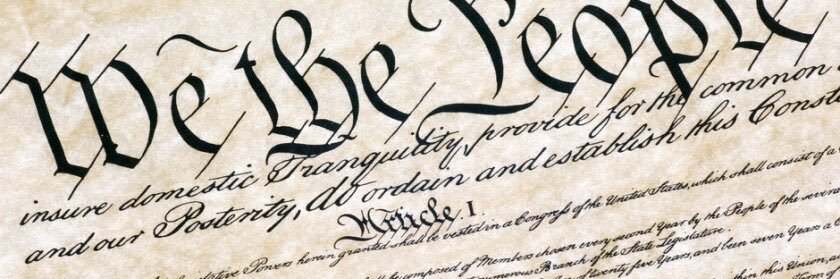 We the People
insure domestic Tranquility, provide for the common
and our Posterity, do ordain and establish this Const
Article. I.
Powers herein granted shall be vested in a Congress of the United States, which shall consist of a
be composed of Members chosen every second Year by the People of the several
numerous Branch of the State Legislature.
of twenty five Years, and been seven Years a
within this Union,